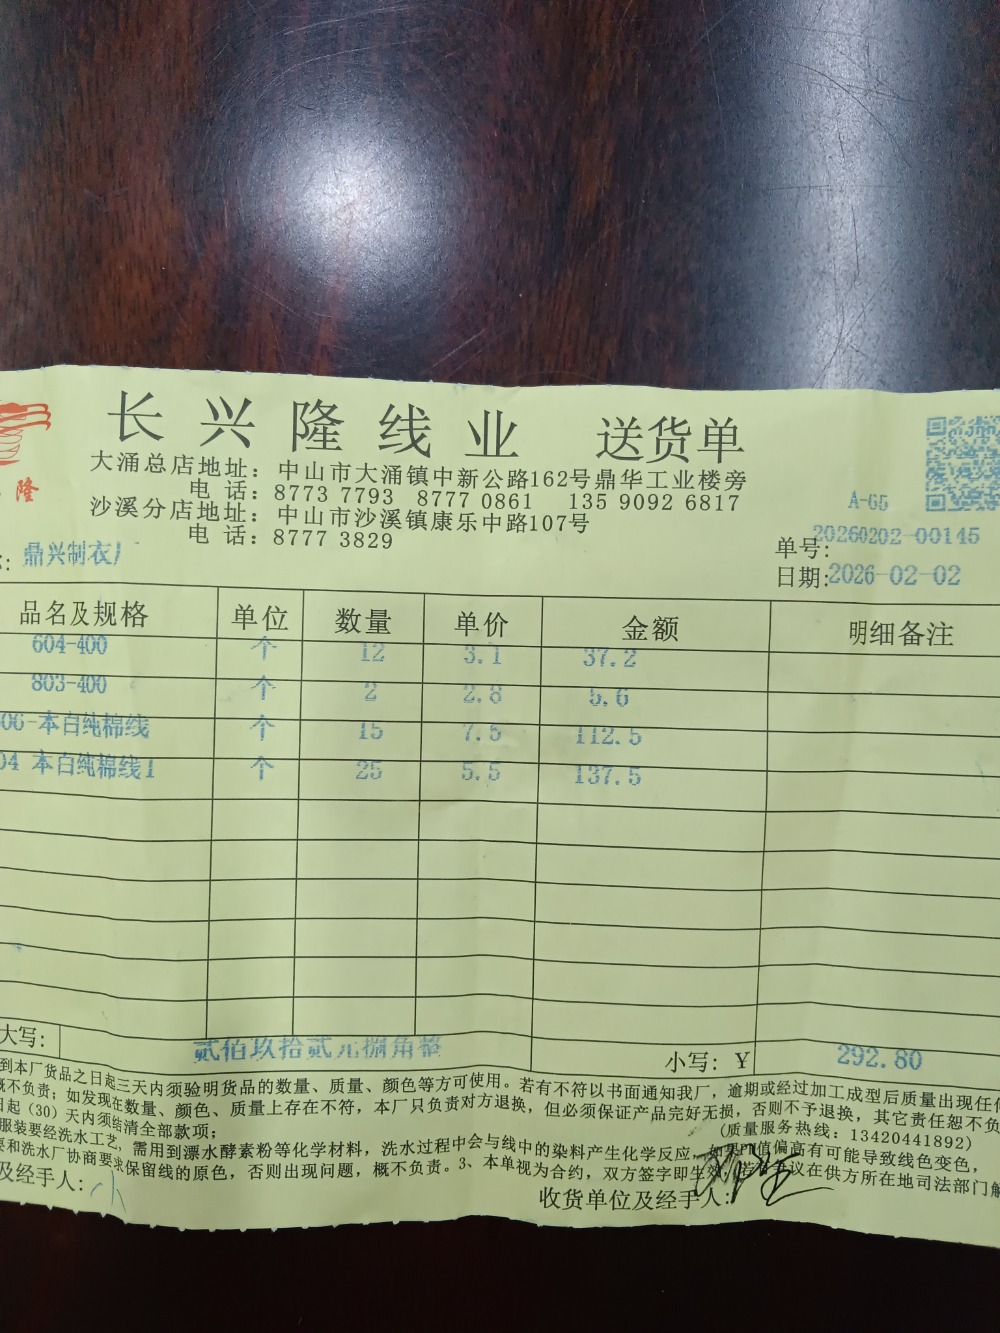 长兴隆线业 送货单
隆
大涌总店地址：中山市大涌镇中新公路162号鼎华工业楼旁
电 话：8773 7793 8777 0861 135 9092 6817
A-G5
沙溪分店地址：中山市沙溪镇康乐中路107号
电 话：8777 3829
单号：20260202-00145
：鼎兴制衣厂
日期：2026-02-02
品名及规格 单位 数量 单价 金额 明细备注
604-400 个 12 3.1 37.2
803-400 个 2 2.8 5.6
06-本白纯棉线 个 15 7.5 112.5
04 本白纯棉线1 个 25 5.5 137.5
大写： 贰佰玖拾贰元捌角整 小写：￥ 292.80
到本厂货品之日起三天内须验明货品的数量、质量、颜色等方可使用。若有不符以书面通知我厂，逾期或经过加工成型后质量出现任何
概不负责；如发现在数量、颜色、质量上存在不符，本厂只负责对方退换，但必须保证产品完好无损，否则不予退换，其它责任恕不负
日起（30）天内须结清全部款项；
(质量服务热线：13420441892)
服装要经洗水工艺，需用到漂水酵素粉等化学材料，洗水过程中会与线中的染料产生化学反应，如果PH值偏高有可能导致线色变色，
要和洗水厂协商要求保留线的原色，否则出现问题，概不负责。3、本单视为合约，双方签字即生效，若有争议在供方所在地司法部门解
及经手人：小
收货单位及经手人：